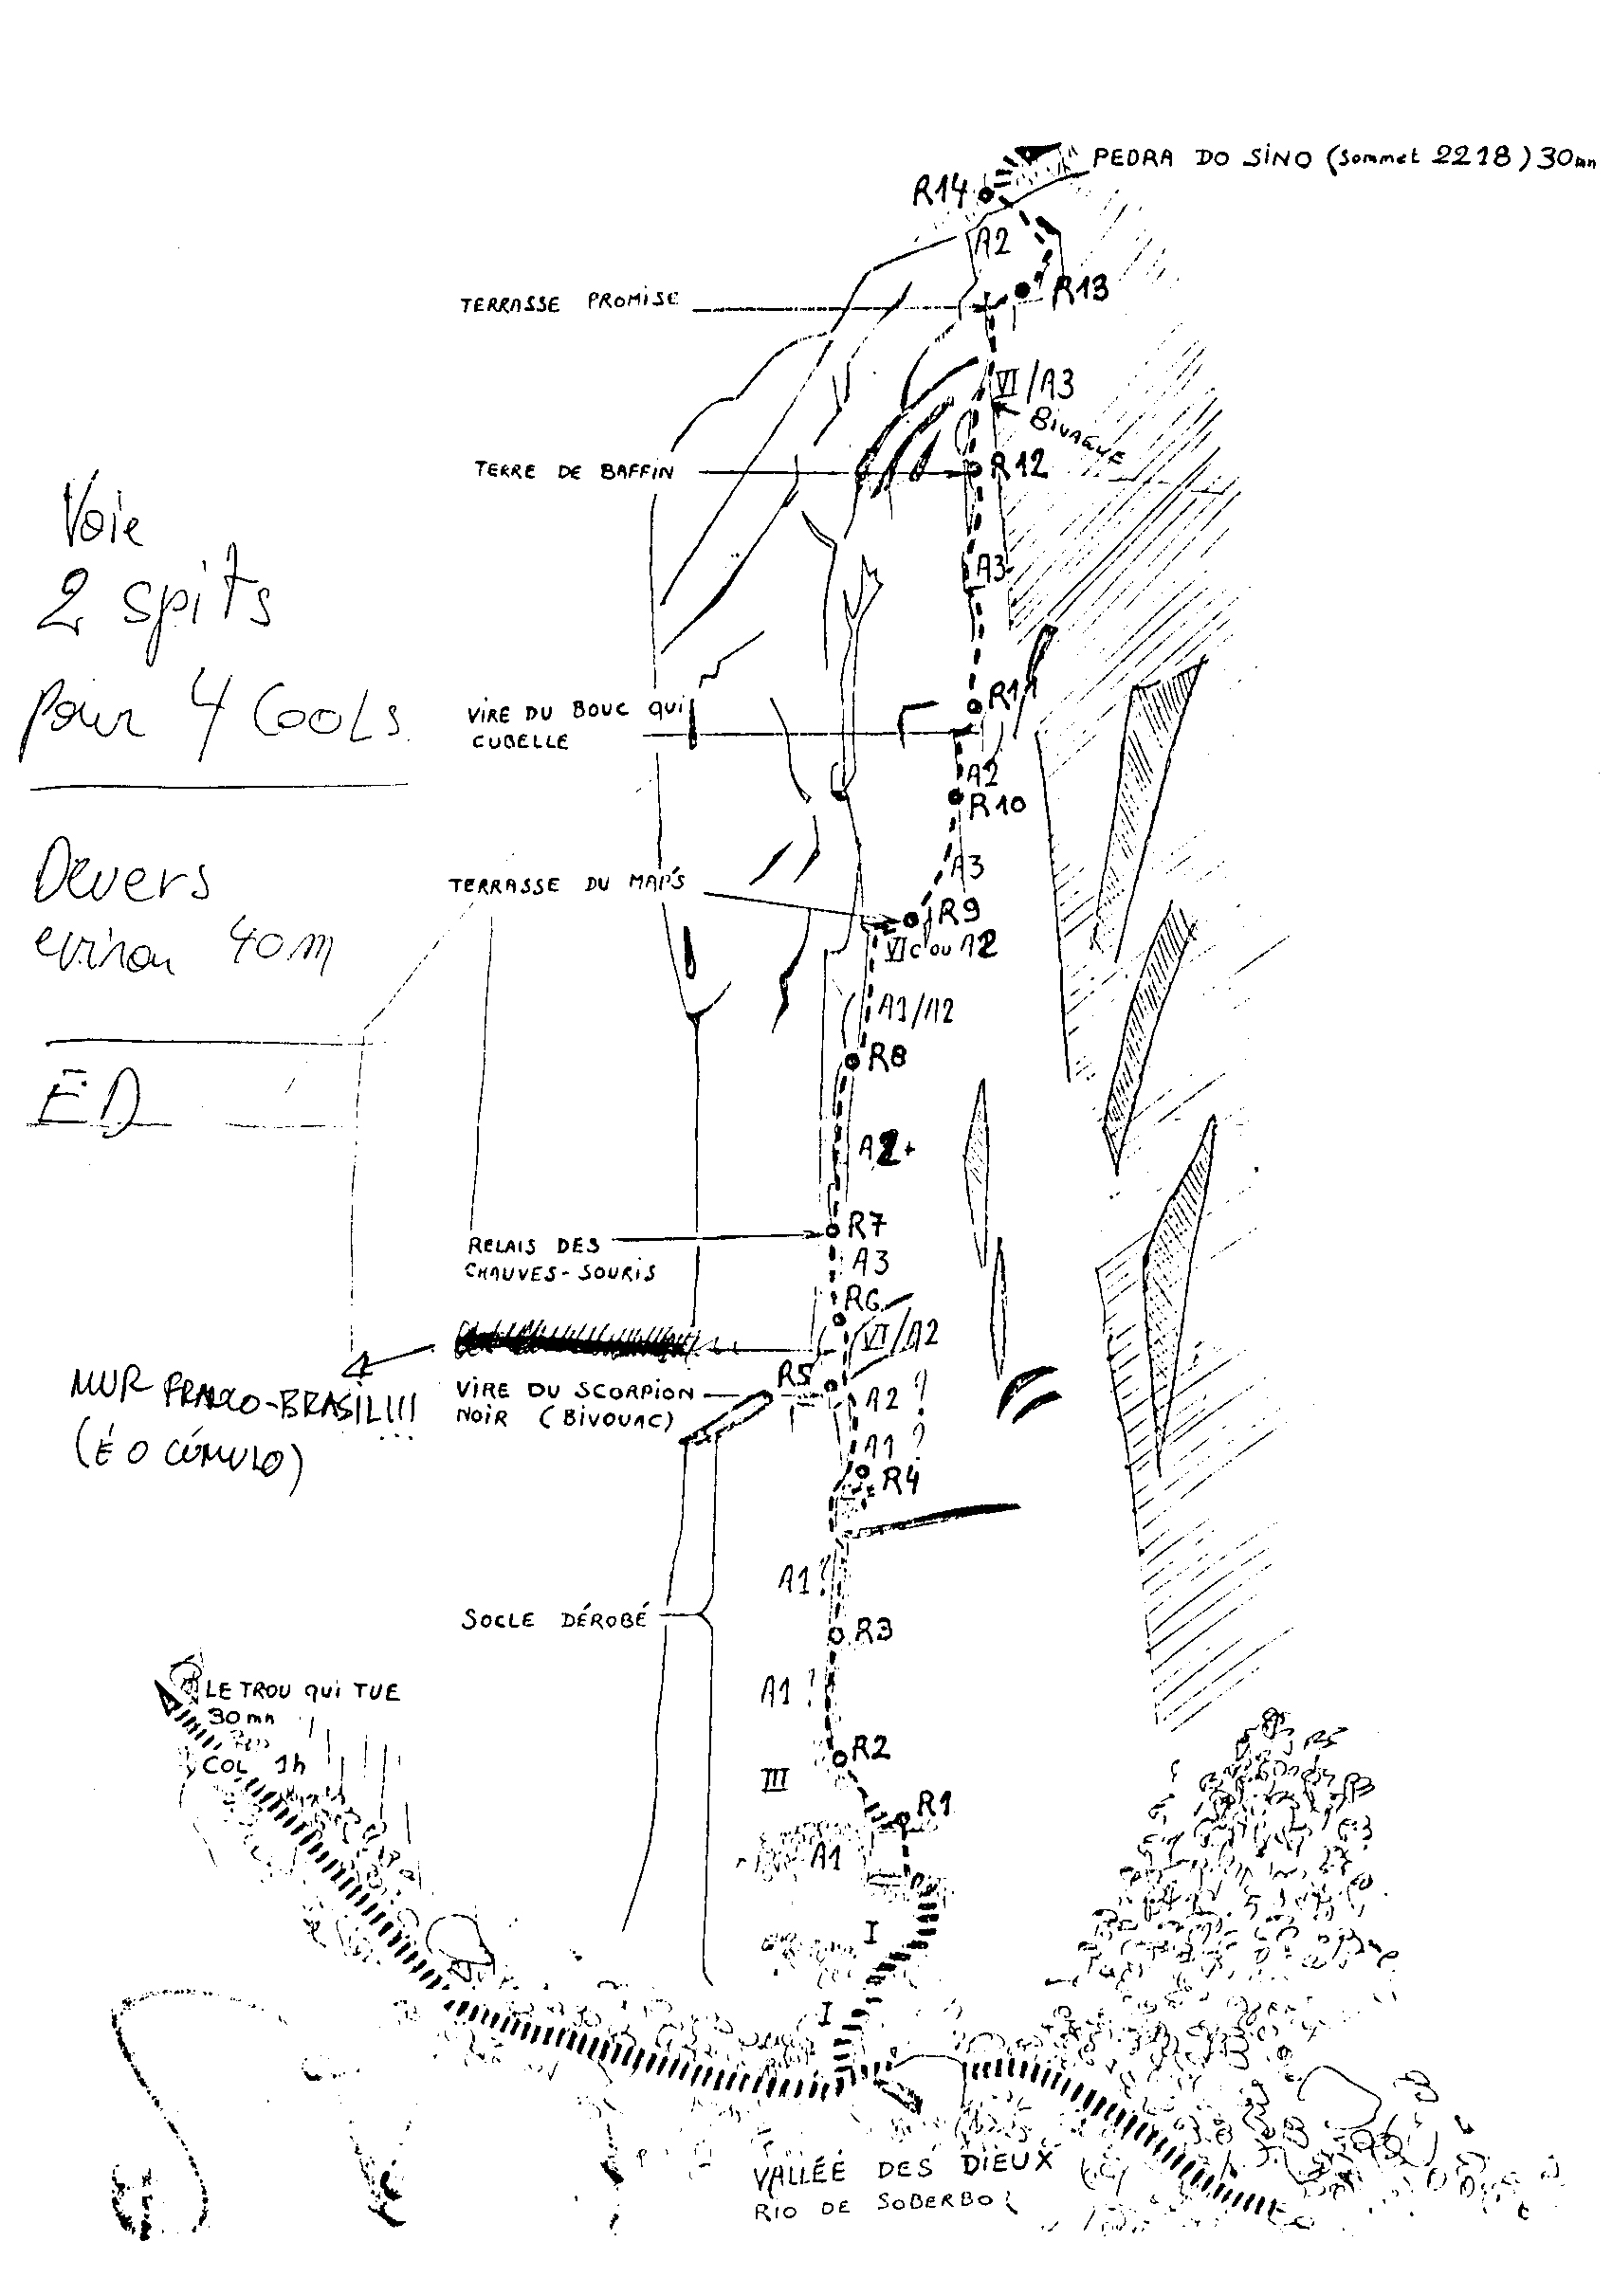 PEDRA DO SINO (sommet 2218) 30mn
R14
A2
R13
TERRASSE PROMISE
VI/A3
BIVAGUE
TERRE DE BAFFIN
R12
A3
Voie
2 spits
pour 4 Cools
VIRE DU BOUC qui
CUBELLE
R11
A2
R10
Devers
environ 40m
A3
TERRASSE DU MAP'S
R9
VIc ou A2
A1/A2
R8
ED
A2+
R7
RELAIS DES
CHAUVES-SOURIS
A3
R6
VI/A2
MUR FRANCO-BRASIL!!!
(É O CÚMULO)
R5
VIRE DU SCORPION
NOIR (BIVOUAC)
A2?
A1?
R4
A1?
SOCLE DÉROBÉ
R3
A1?
LE TROU qui TUE
30mn
COL 1h
R2
III
R1
A1
I
I
VALLÉE DES DIEUX
RIO DE SOBERBO